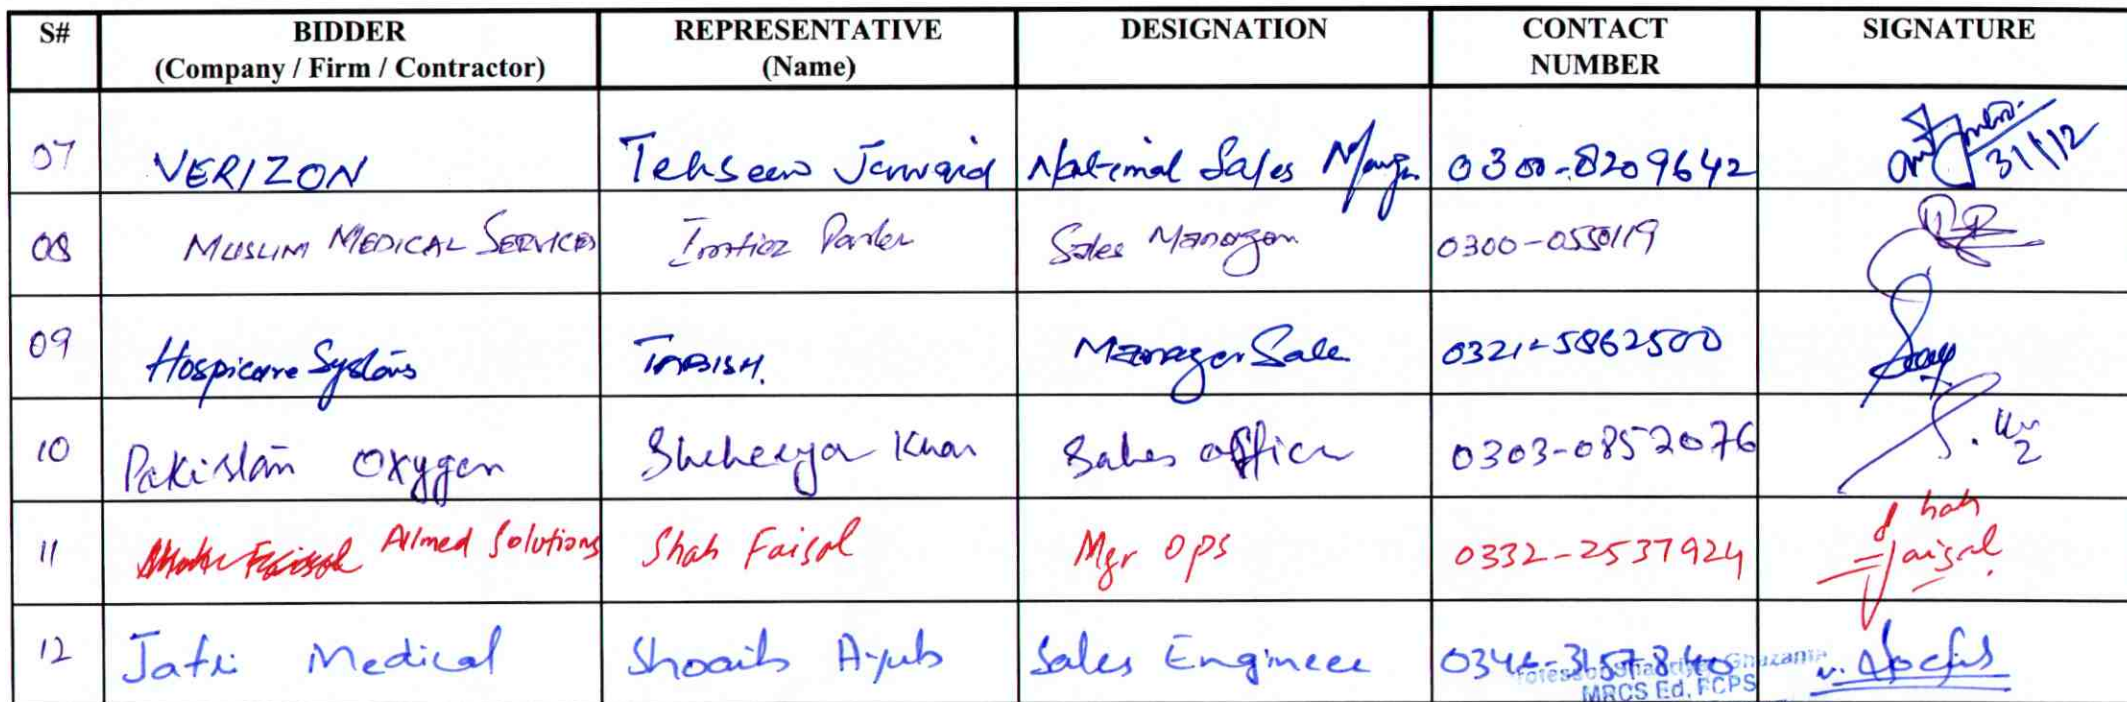 S# BIDDER (Company / Firm / Contractor) REPRESENTATIVE (Name) DESIGNATION CONTACT NUMBER SIGNATURE
07 VERIZON Tehseen Jawaid National Sales 0300-8209642 31/12
08 MUSLIM MEDICAL SERVICES Sales Manager 0300-0550119
09 Hospicare Systems TABISH. Manager Sale 0321-5862500
10 Pakistan Oxygen Sheheryar Khan Sales officer 0303-0852076
11 Allmed Solutions Shah Faisal Mgr Ops 0332-2537924 Shah Faisal
12 Jafri Medical Shoaib Ayub Sales Engineer
MRCS Ed, FCPS